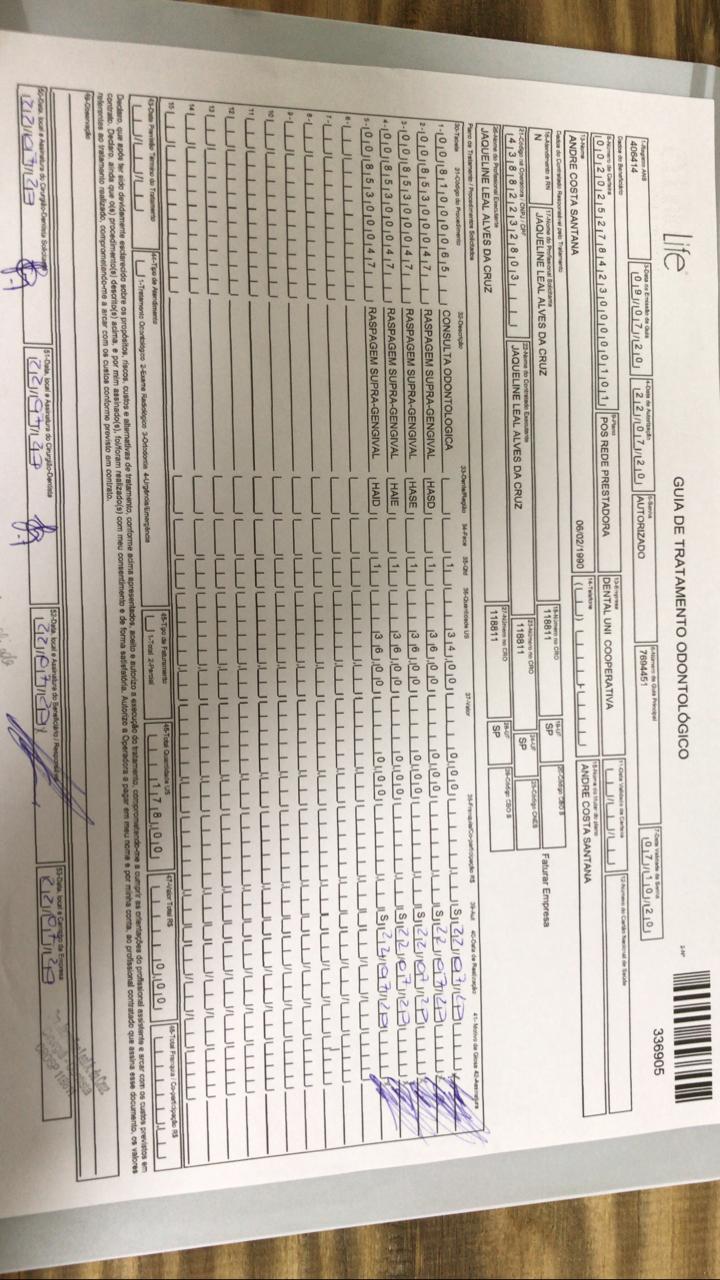 life
GUIA DE TRATAMENTO ODONTOLÓGICO
2-Nº
336905
1-Registro ANS
406414
3-Data de Emissão da Guia
09/07/20
4-Data de Autorização
22/07/20
5-Senha
AUTORIZADO
6-Número da Guia Principal
7694451
7-Data Validade da Senha
07/10/20
Dados do Beneficiário
8-Número da Carteira
9-Plano
POS REDE PRESTADORA
10-Empresa
DENTAL UNI COOPERATIVA
11-Data Validade da Carteira
12-Número do Cartão Nacional de Saúde
13-Nome
ANDRE COSTA SANTANA
06/02/1990
14-Telefone
15-Nome do titular do plano
ANDRE COSTA SANTANA
Dados do Contratado Responsável pelo Tratamento
16-Atendimento a RN
N
17-Nome do Profissional Solicitante
JAQUELINE LEAL ALVES DA CRUZ
18-Número no CRO
118811
19-UF
SP
20-Código CBO S
Faturar Empresa
21-Código na Operadora / CNPJ / CPF
43882232803
22-Nome do Contratado Executante
JAQUELINE LEAL ALVES DA CRUZ
23-Número no CRO
118811
24-UF
SP
25-Código CNES
26-Nome do Profissional Executante
JAQUELINE LEAL ALVES DA CRUZ
27-Número no CRO
118811
28-UF
SP
29-Código CBO S
Plano de Tratamento / Procedimentos Solicitados
30-Tabela 31-Código do Procedimento 32-Descrição 33-Dente/Região 34-Face 35-Qtd 36-Quantidade US 37-Valor 38-Franquia/Co-participação R$ 39-Aut 40-Data de Realização 41-Motivo da Glosa 42-Assinatura
1- 00 81000065 CONSULTA ODONTOLOGICA 1 34,00 0,00 S 22/07/20
2- 00 85300047 RASPAGEM SUPRA-GENGIVAL HASD 1 36,00 0,00 S 22/07/20
3- 00 85300047 RASPAGEM SUPRA-GENGIVAL HASE 1 36,00 0,00 S 22/07/20
4- 00 85300047 RASPAGEM SUPRA-GENGIVAL HAIE 1 36,00 0,00 S 22/07/20
5- 00 85300047 RASPAGEM SUPRA-GENGIVAL HAID 1 36,00 0,00 S 22/07/20
6-
7-
8-
9-
10
11
12
13
14
15
43-Data Previsão Término do Tratamento
44-Tipo de Atendimento
1-Tratamento Odontológico 2-Exame Radiológico 3-Ortodontia 4-Urgência/Emergência
45-Tipo de Faturamento
1-Total 2-Parcial
46-Total Quantidade US
178,00
47-Valor Total R$
0,00
48-Total Franquia / Co-participação R$
Declaro que após ter sido devidamente esclarecido sobre os propósitos, riscos, custos e alternativas de tratamento, conforme acima apresentados, aceito e autorizo a execução do tratamento, comprometendo-me a cumprir as orientações do profissional assistente e arcar com os custos previstos em
contrato. Declaro, ainda que o(s) procedimento(s) descrito(s) acima, e por mim assinado(s), foi/foram realizado(s) com meu consentimento e de forma satisfatória. Autorizo a Operadora a pagar em meu nome e por minha conta, ao profissional contratado que assina esse documento, os valores
referentes ao tratamento realizado, comprometendo-me a arcar com os custos conforme previsto em contrato.
49-Observação
50-Data, local e Assinatura do Cirurgião-Dentista Solicitante
22/07/20
51-Data, local e Assinatura do Cirurgião-Dentista
22/07/20
52-Data, local e Assinatura do Beneficiário / Responsável
22/07/20
53-Data, local e Carimbo da Empresa
22/07/20